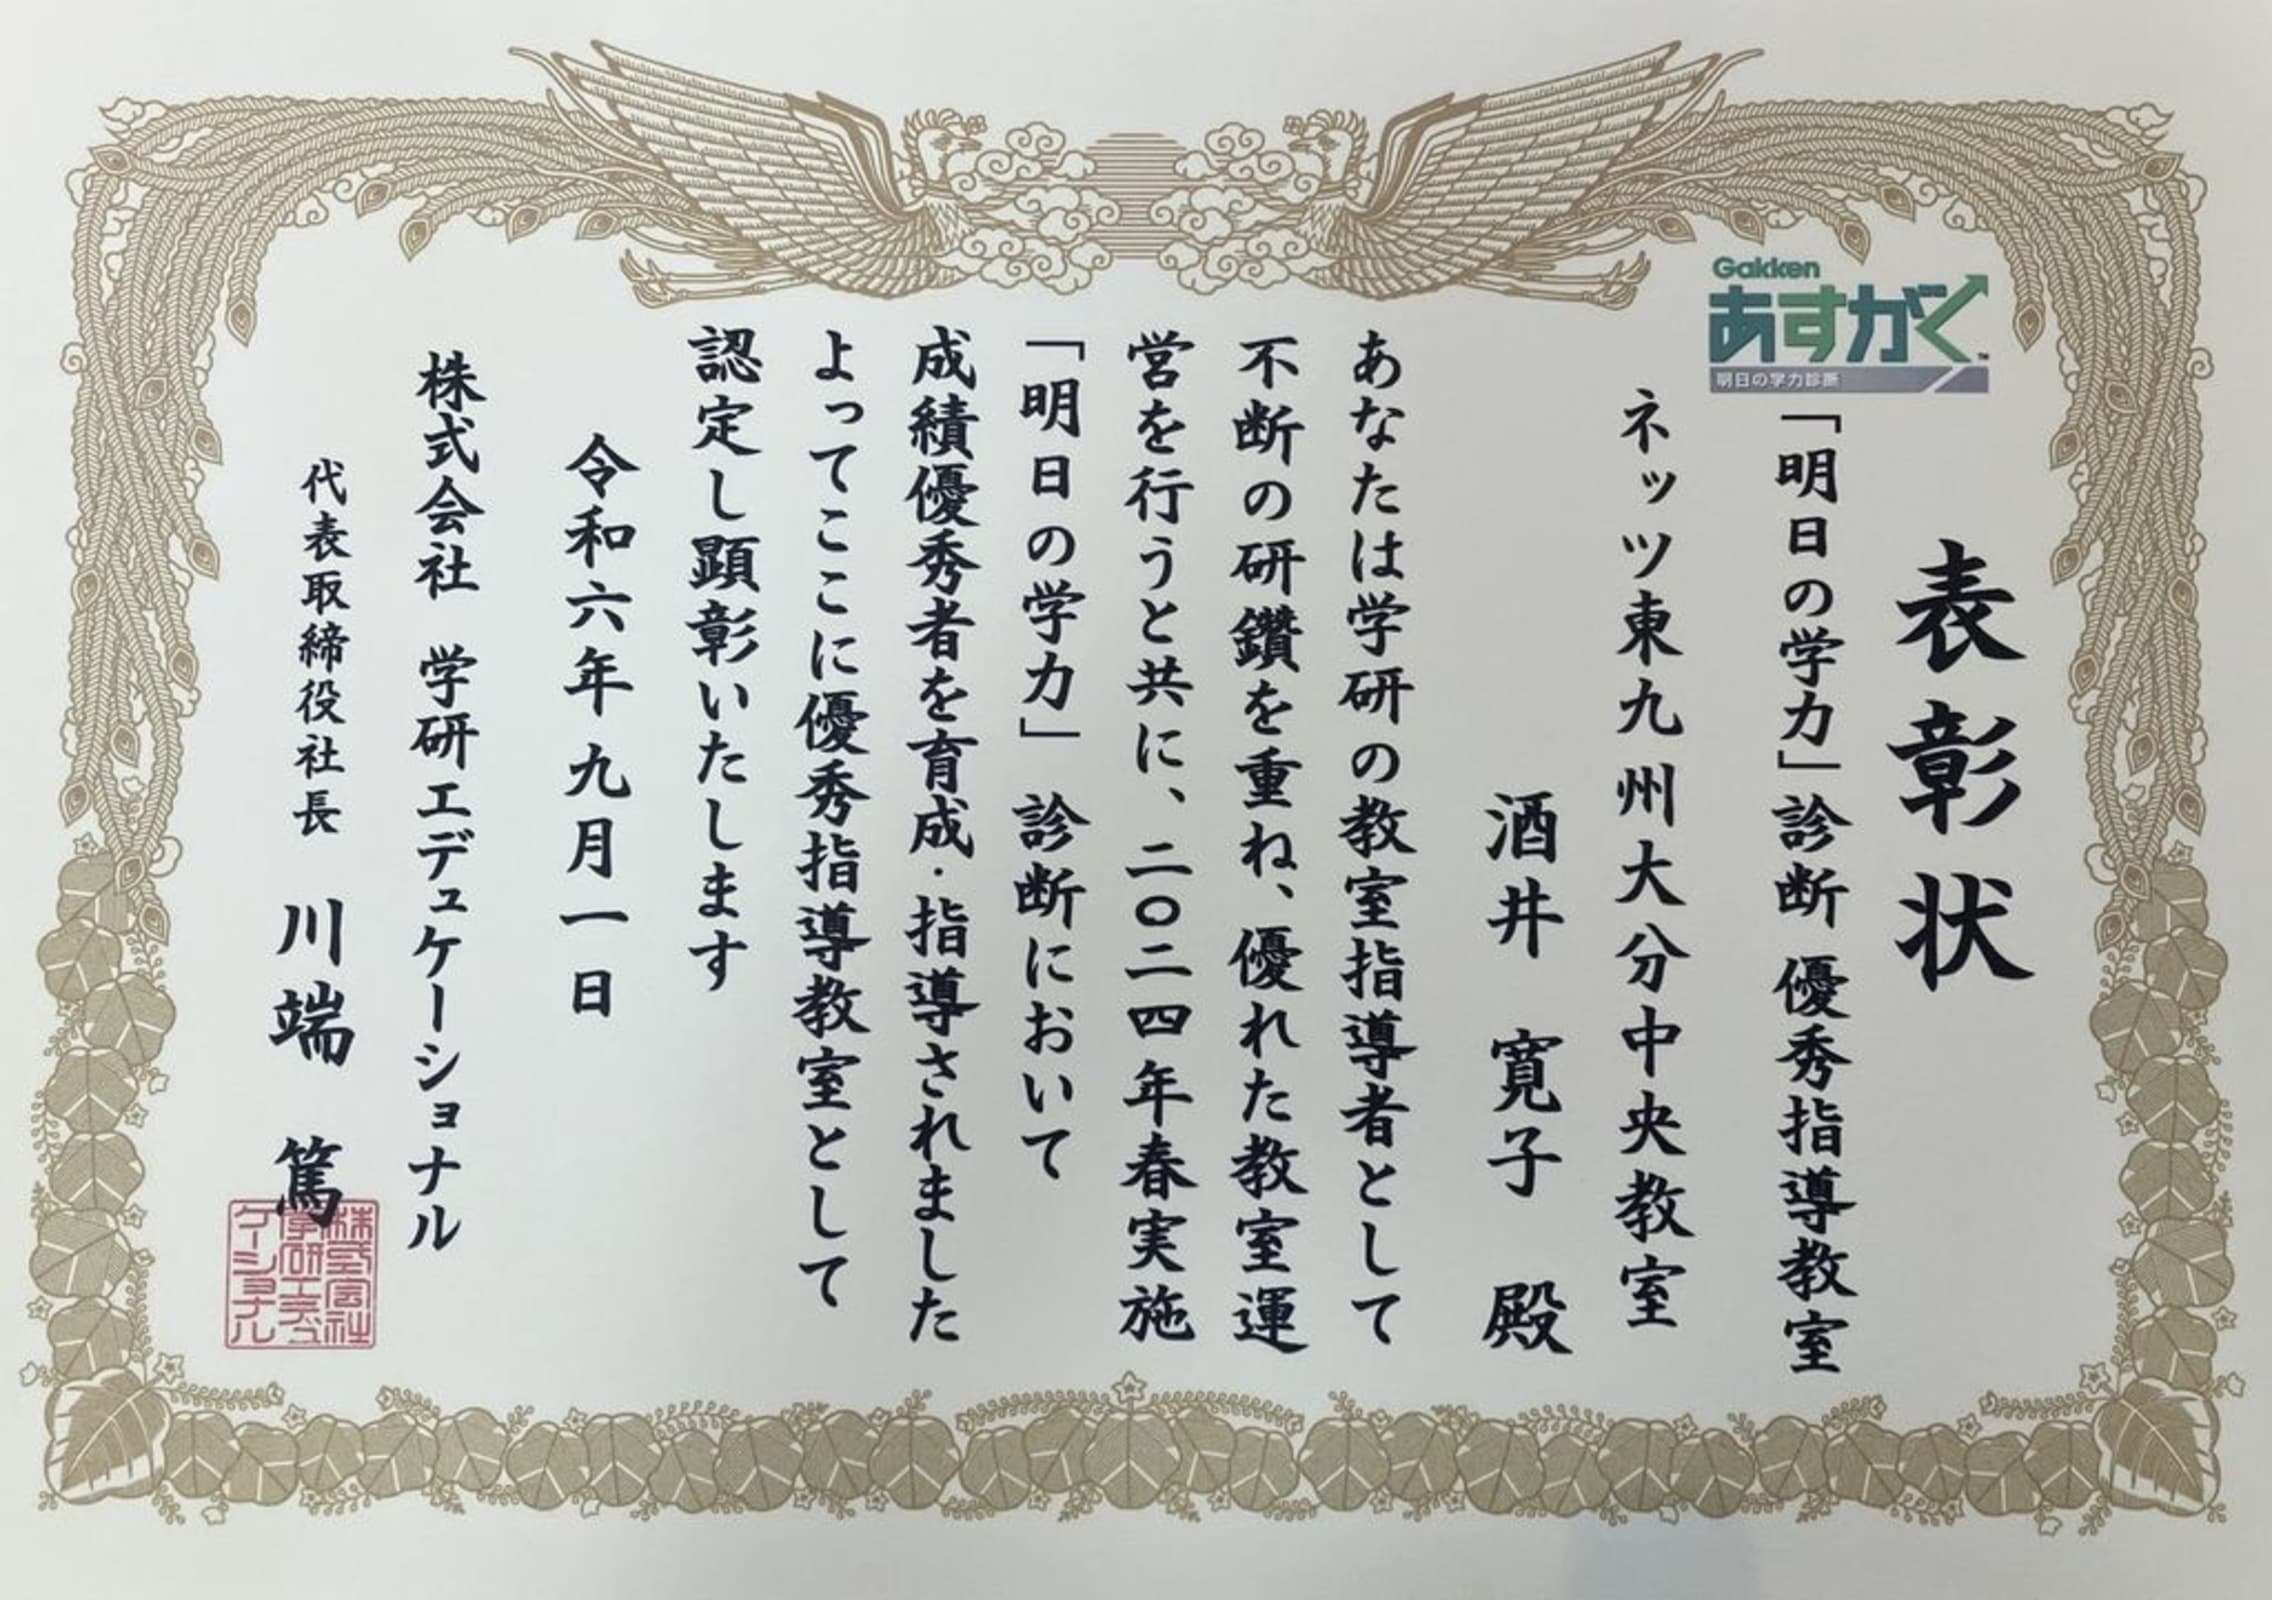 表彰状
Gakken
あすがく™
明日の学力診断
「明日の学力」診断 優秀指導教室
ネッツ東九州大分中央教室
酒井 寛子 殿
あなたは学研の教室指導者として
不断の研鑽を重ね、優れた教室運
営を行うと共に、二〇二四年春実施
「明日の学力」診断において
成績優秀者を育成・指導されました
よってここに優秀指導教室として
認定し顕彰いたします
令和六年九月一日
株式会社 学研エデュケーショナル
代表取締役社長 川端 篤
株式会社
学研エデュ
ケーショナル